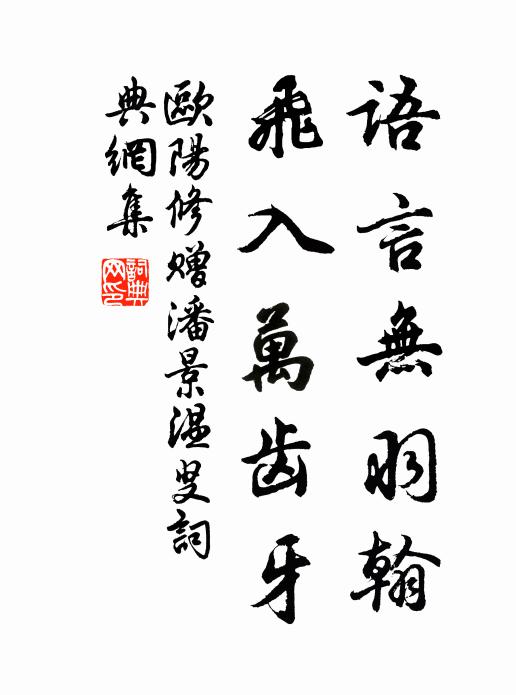 語言無羽翰
飛入萬齿牙
歐陽修贈潘景温叟詞
典網集
詞典網印